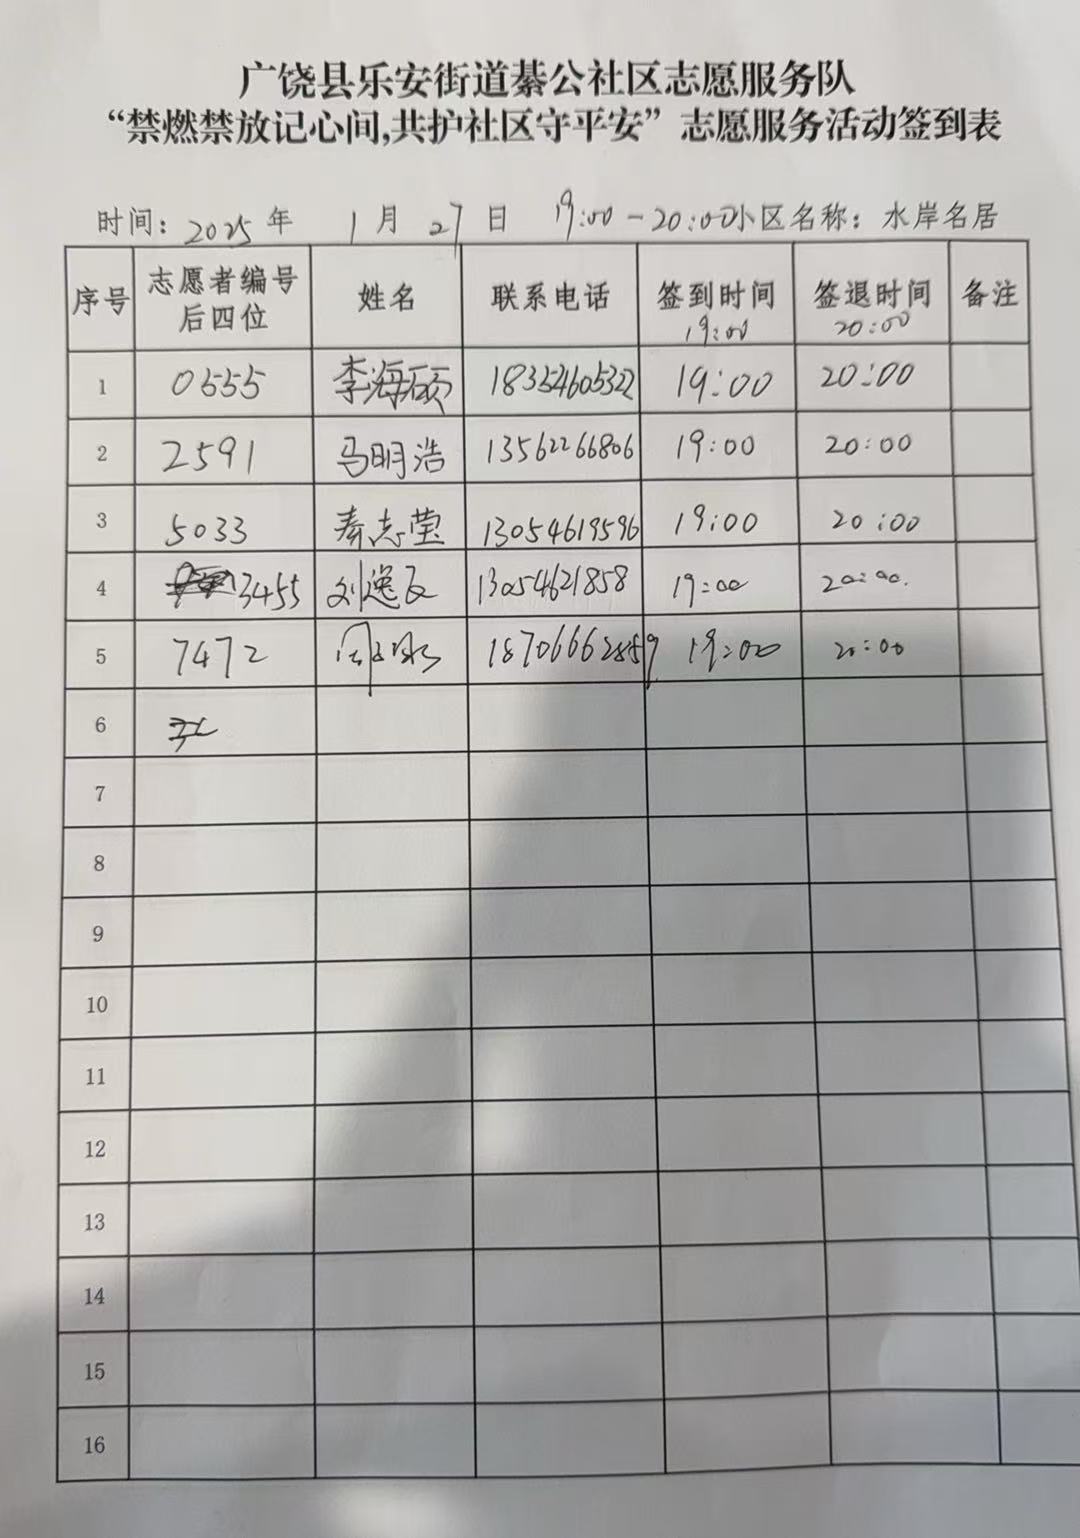 广饶县乐安街道綦公社区志愿服务队
“禁燃禁放记心间,共护社区守平安”志愿服务活动签到表
时间: 2025 年 1 月 27 日 19:00-20:00 小区名称: 水岸名居
序号 志愿者编号后四位 姓名 联系电话 签到时间 19:00 签退时间 20:00 备注
1 0555 李海硕 18354605322 19:00 20:00
2 2591 马明浩 13562266806 19:00 20:00
3 5033 秦志莹 13054619596 19:00 20:00
4 3455 刘逸 13054621858 19:00 20:00
5 7472 1870666 19:00 20:00
6
7
8
9
10
11
12
13
14
15
16